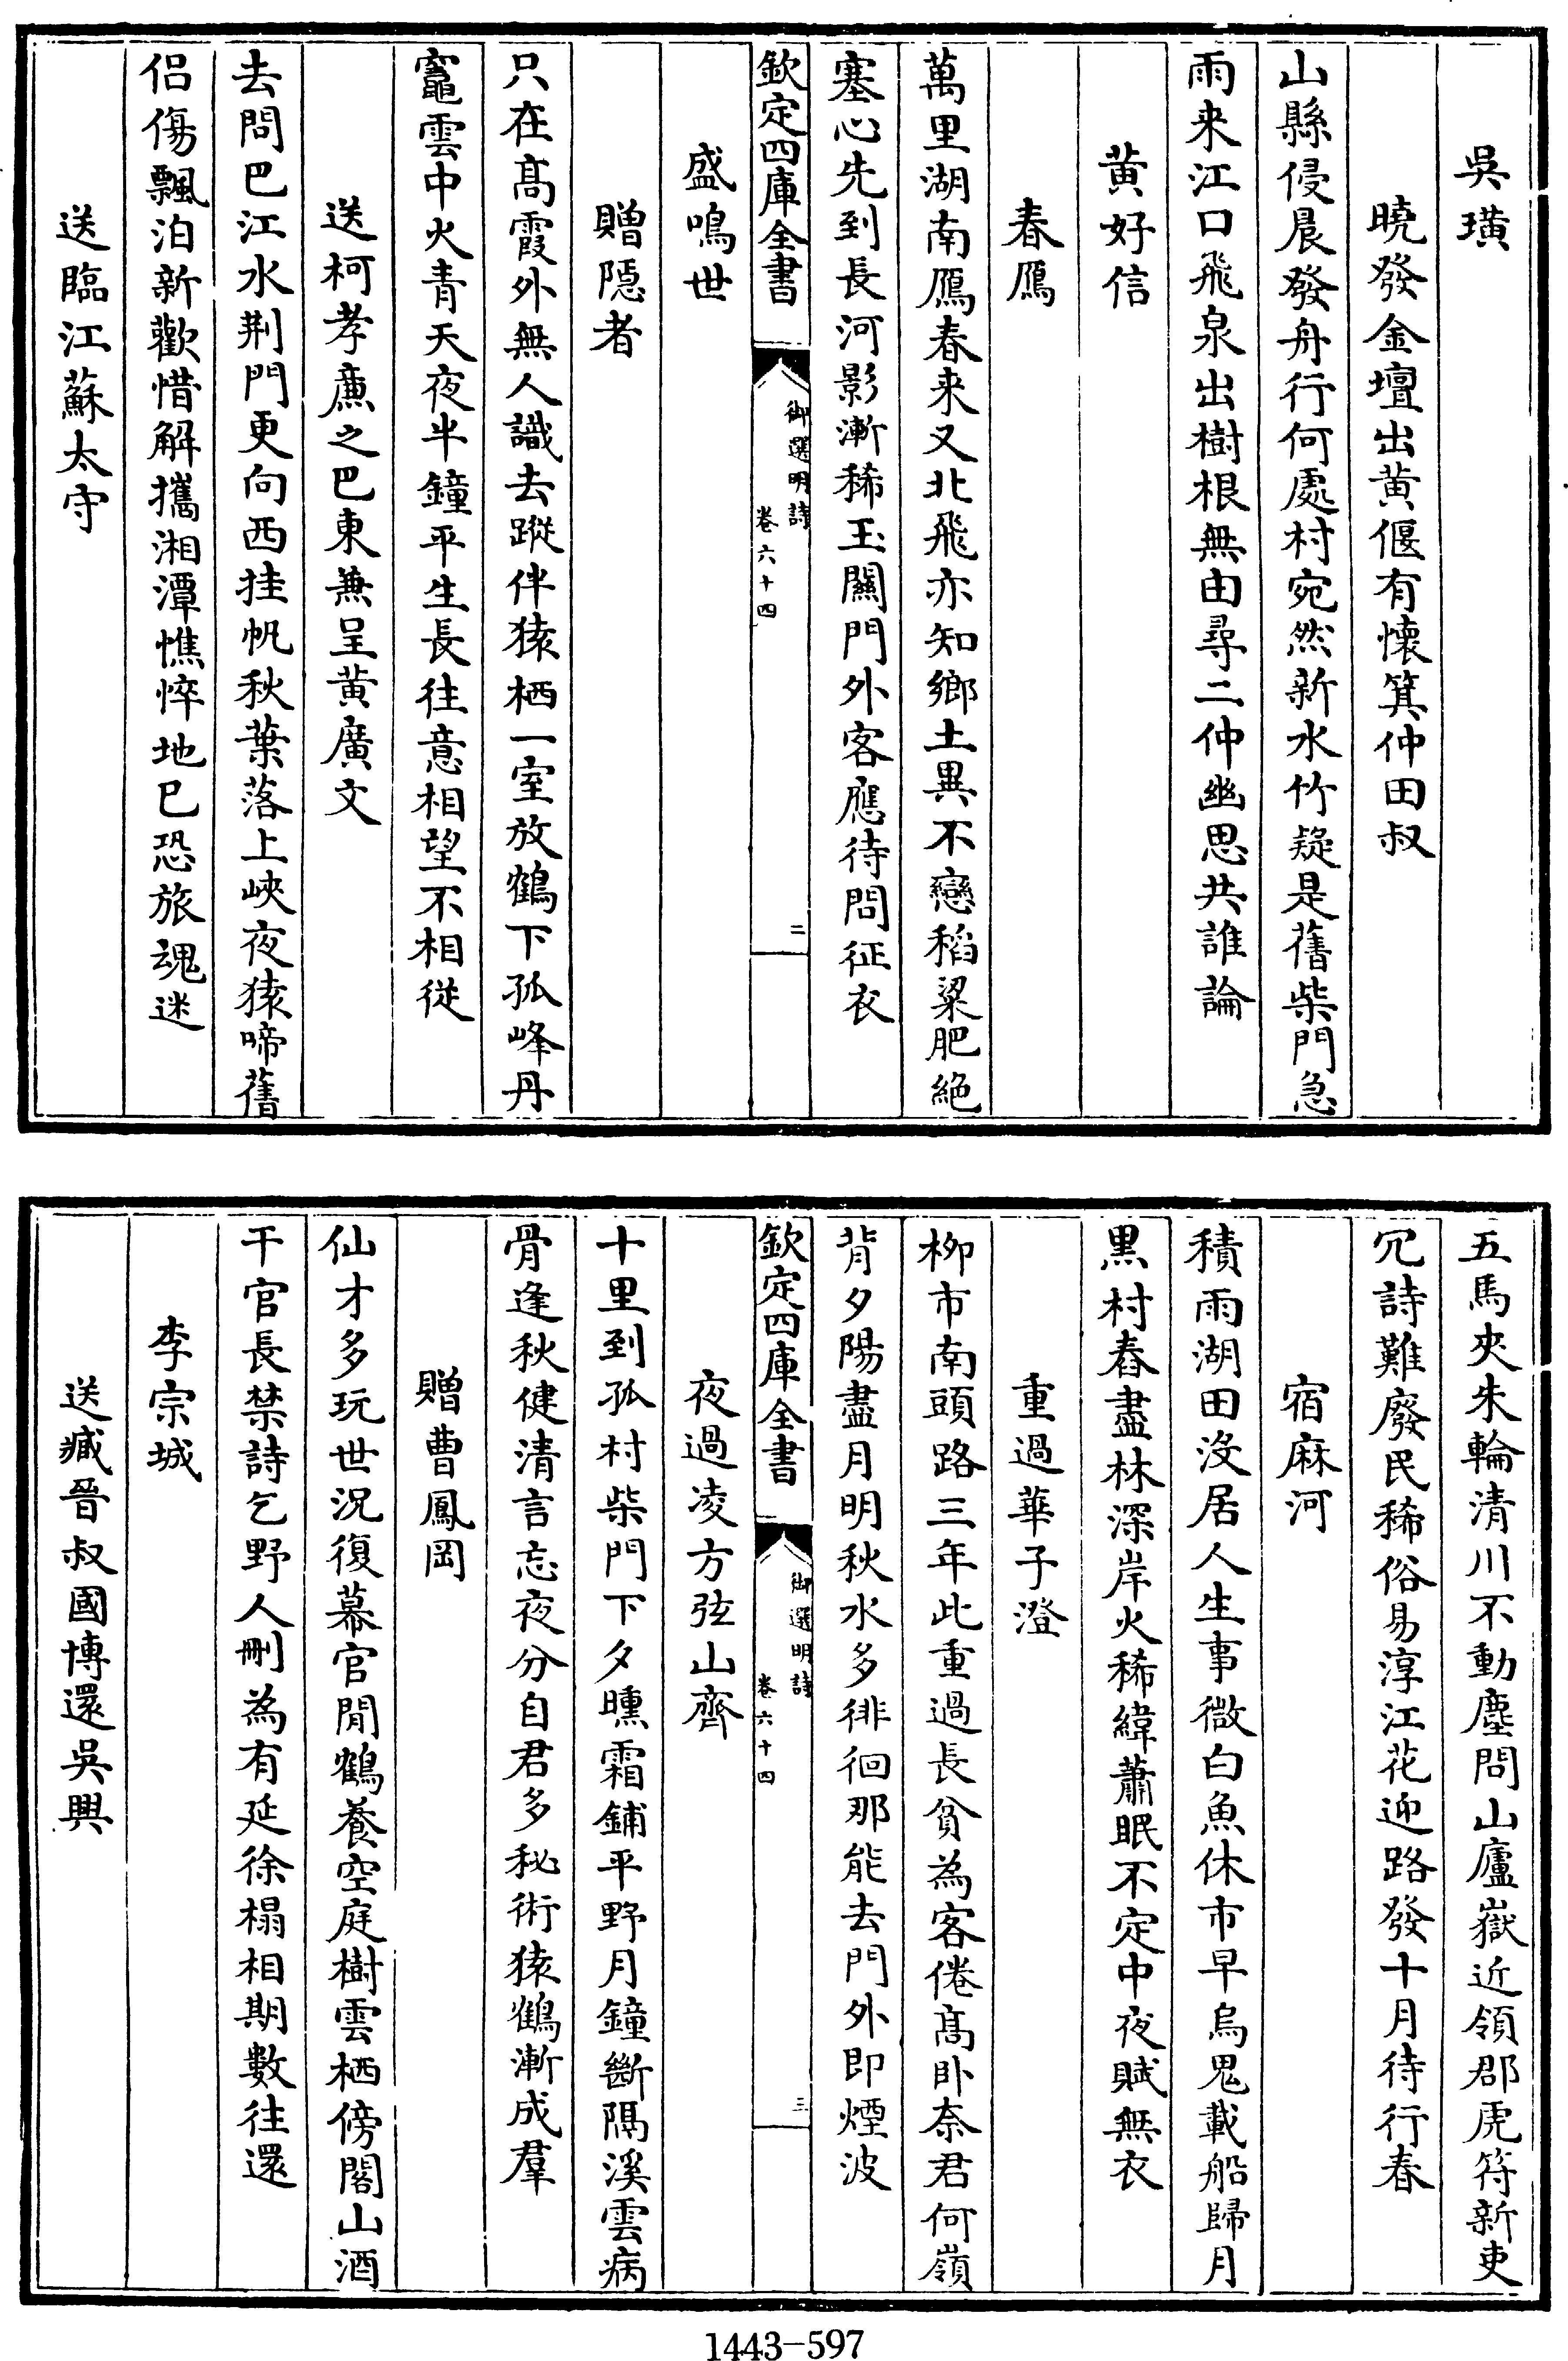 吳璜
曉發金壇出黄偃有懷箕仲田叔
山縣侵晨發舟行何處村宛然新水竹疑是舊柴門急
雨来江口飛泉出樹根無由尋二仲幽思共誰論
黄好信
春鴈
萬里湖南鴈春来又北飛亦知鄉土異不戀稻粱肥絶
塞心先到長河影漸稀玉關門外客應待問征衣
欽定四庫全書
御選明詩
卷六十四
二
盛鳴世
贈隱者
只在髙霞外無人識去蹤伴猿栖一室放鶴下孤峰丹
竈雲中火青天夜半鐘平生長往意相望不相從
送柯孝廉之巴東兼呈黄廣文
去問巴江水荆門更向西挂帆秋葉落上峽夜猿啼舊
侣傷飄泊新歡惜解攜湘潭憔悴地已恐旅魂迷
送臨江蘇太守
五馬夾朱輪清川不動塵問山廬嶽近領郡虎符新吏
冗詩難廢民稀俗易淳江花迎路發十月待行春
宿麻河
積雨湖田沒居人生事微白魚休市早烏鬼載船歸月
黒村舂盡林深岸火稀緯蕭眠不定中夜賦無衣
重過華子澄
栁市南頭路三年此重過長貧為客倦髙卧奈君何嶺
背夕陽盡月明秋水多徘徊那能去門外即煙波
欽定四庫全書
御選明詩
卷六十四
三
夜過凌方弦山齋
十里到孤村柴門下夕曛霜鋪平野月鐘斷隔溪雲病
骨逢秋健清言忘夜分自君多秘術猿鶴漸成羣
贈曹鳳岡
仙才多玩世況復幕官閒鶴養空庭樹雲栖傍閣山酒
干官長禁詩乞野人刪為有延徐榻相期數往還
李宗城
送臧晉叔國博還吳興
1443-597